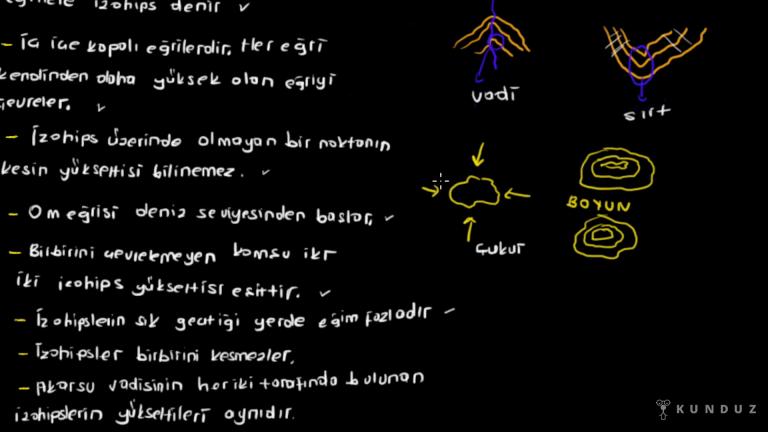 izohips denir
- İç içe kapalı eğrilerdir, Her eğri
kendinden daha yüksek olan eğriyi
çevreler.
- İzohips üzerinde olmayan bir noktanın
kesin yükseltisi bilinemez.
- 0 m eğrisi deniz seviyesinden başlar,
- Birbirini çevrelemeyen komşu iki
iki izohips yükseltisi eşittir.
- İzohipslerin sık geçtiği yerde eğim fazladır
- İzohipsler birbirini kesmezler.
- Akarsu vadisinin her iki tarafında bulunan
izohipslerin yükseltileri aynıdır.
vadi
sırt
çukur
BOYUN
KUNDUZ